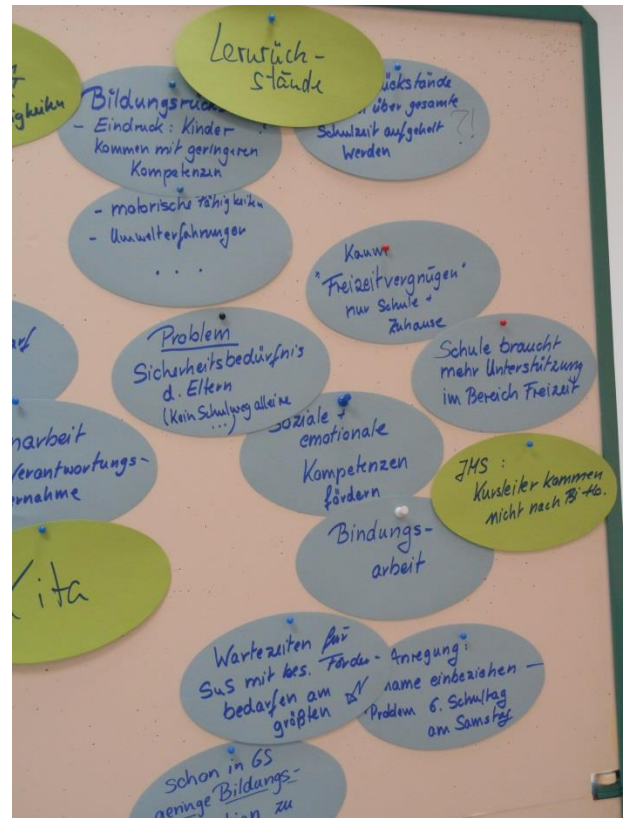 Lernrück-
stände
igkeiten
Bildungsrück
- Eindruck: Kinder
kommen mit geringeren
Kompetenzen
- motorische Fähigkeiten
- Umwelterfahrungen
. . .
ückstände
über gesamte
Schulzeit aufgeholt
werden ?!
Kaum
"Freizeitvergnügen"
nur Schule +
Zuhause
Problem
Sicherheitsbedürfnis
d. Eltern
(Kein Schulweg alleine
...)
Schule braucht
mehr Unterstützung
im Bereich Freizeit
Soziale +
emotionale
Kompetenzen
fördern
JHS :
Kursleiter kommen
nicht nach Bi-Ho.
Bindungs-
arbeit
arf
narbeit
Verantwortungs-
ernahme
Kita
Wartezeiten für
SuS mit bes. Förder-
bedarfen am
größten
Anregung:
name einbeziehen —
Problem 6. Schultag
am Samstag
schon in GS
geringe Bildungs-
zu